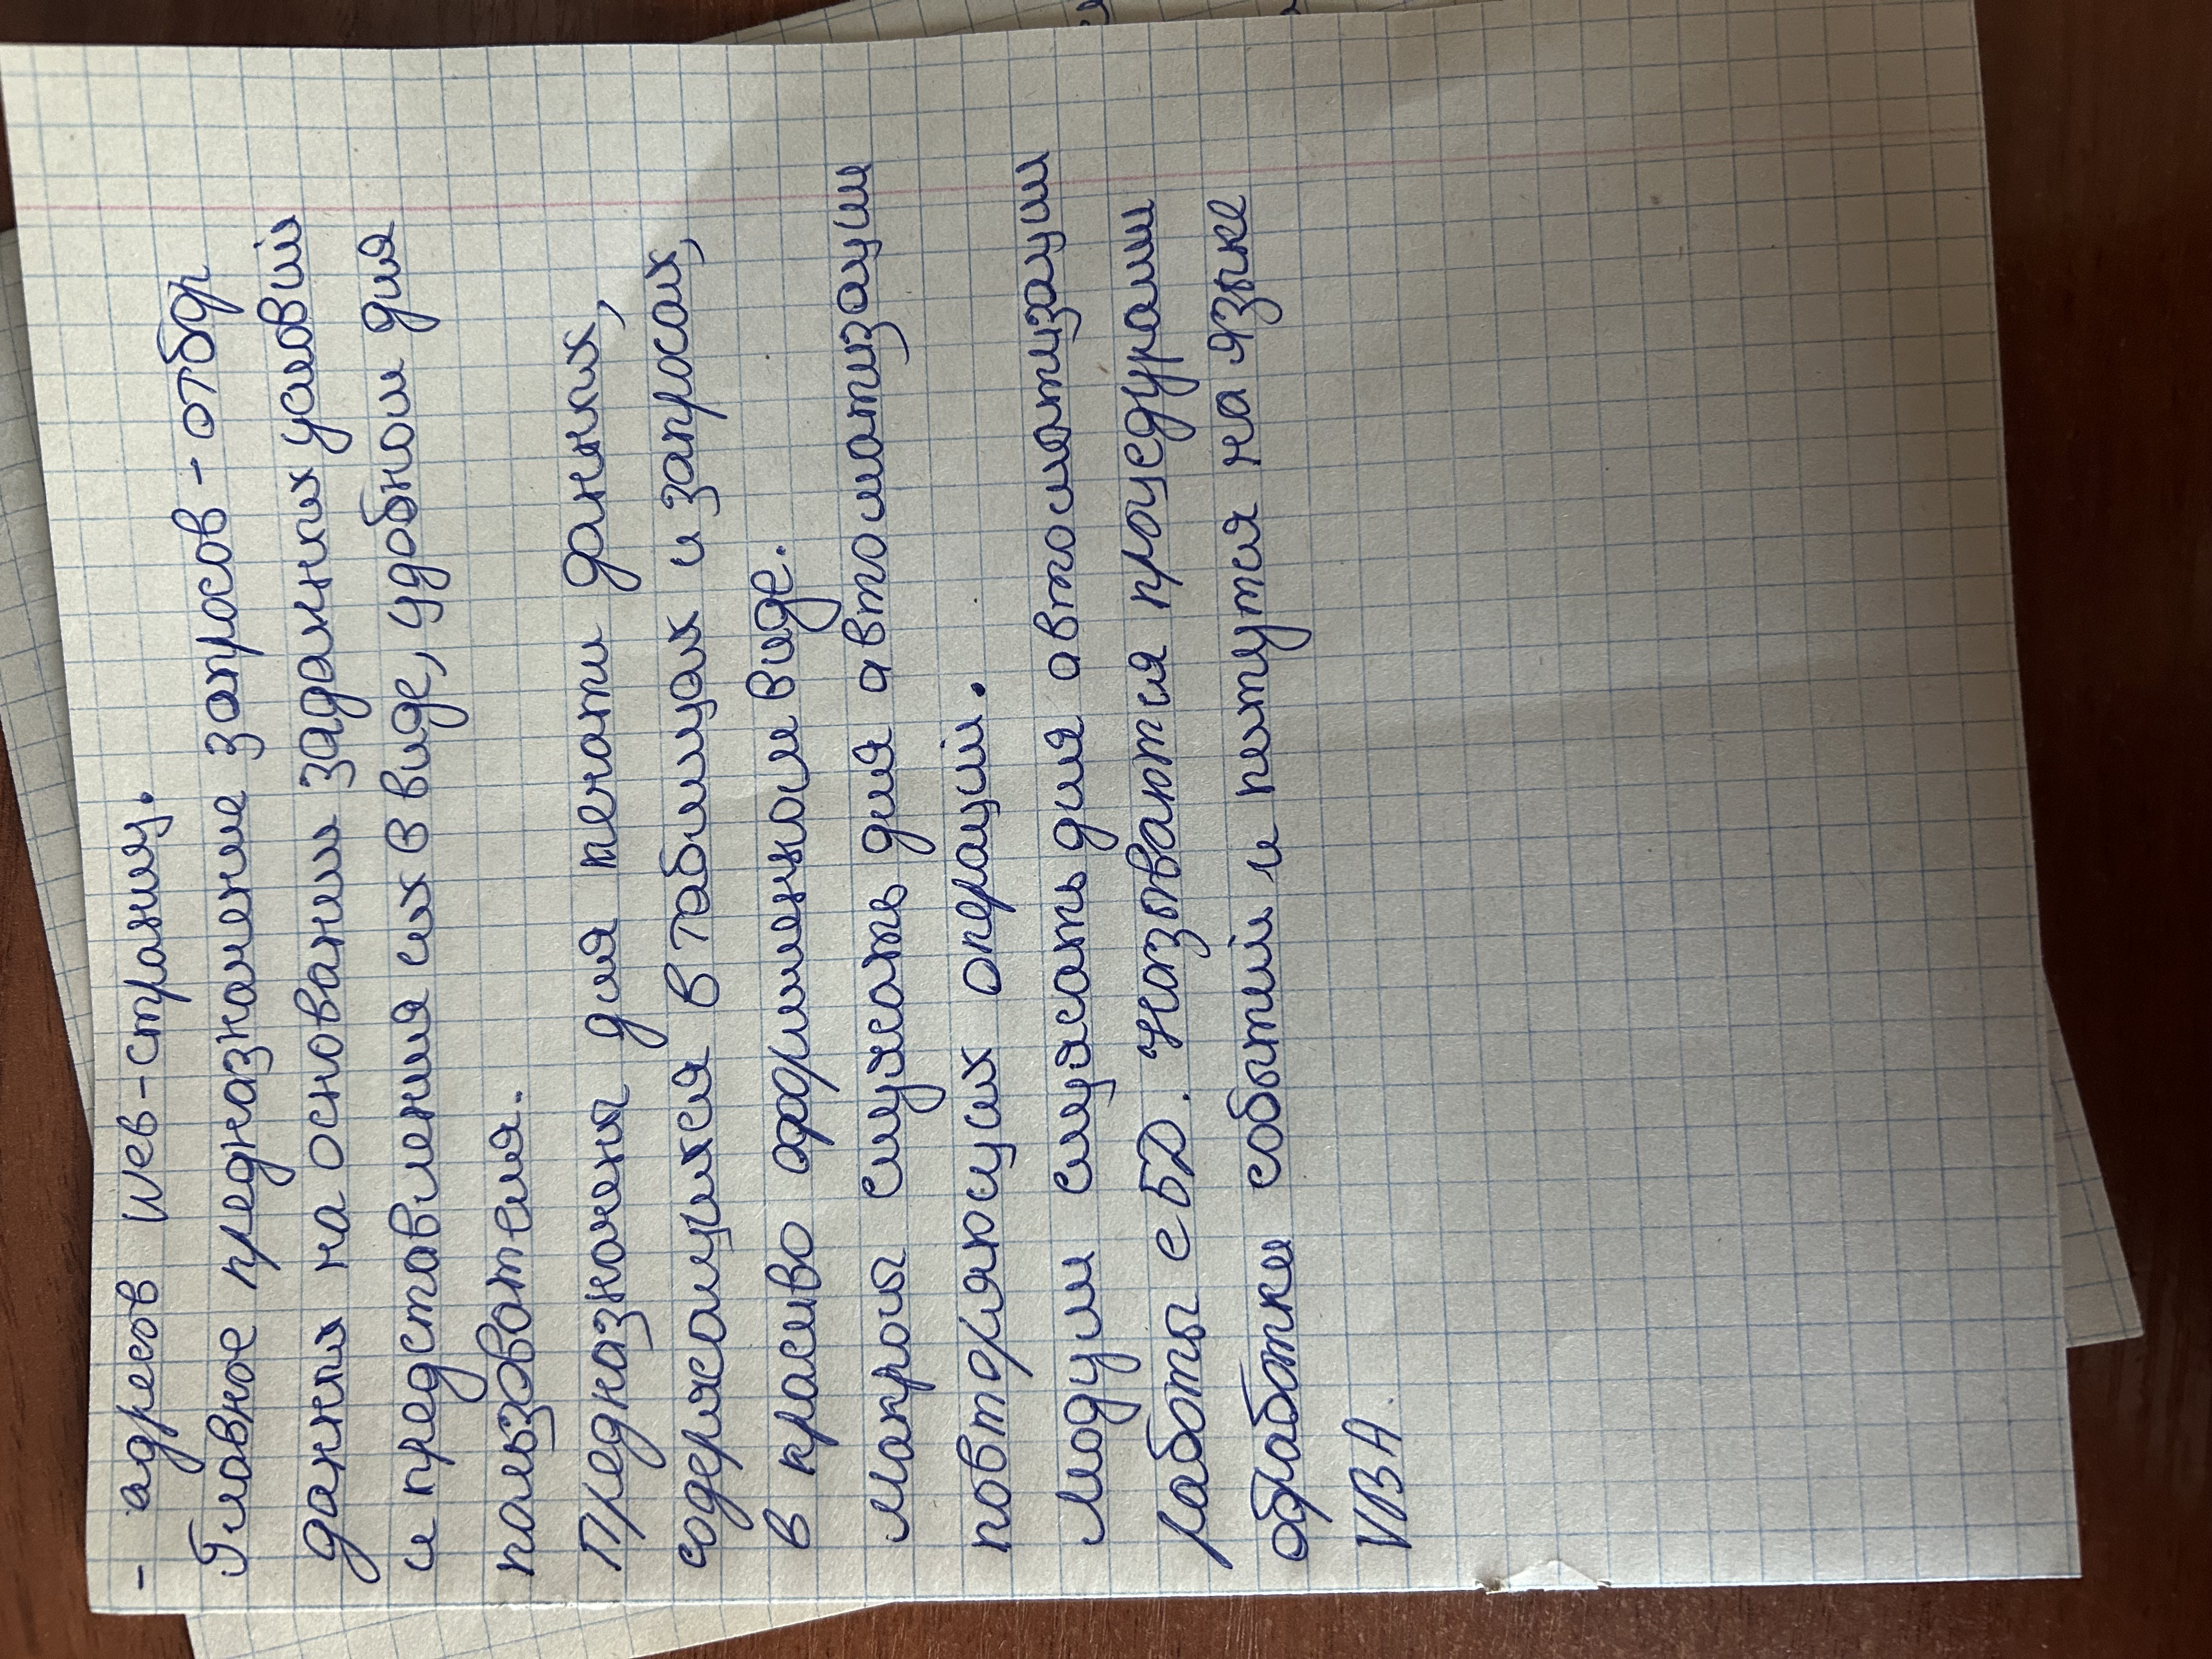 - адресов Wев-страниц.
Главное предназначение запросов - отбор
данных на основании заданных условий
и представления их в виде, удобном для
пользователя.
Предназначены для печати данных,
содержащихся в таблицах и запросах,
в красиво оформленном виде.
Макросы служать для автоматизации
повторяющихся операций.
Модули служать для автоматизации
работы с БД. Называются процедурами
обработки событий и пишутся на языке
VBA